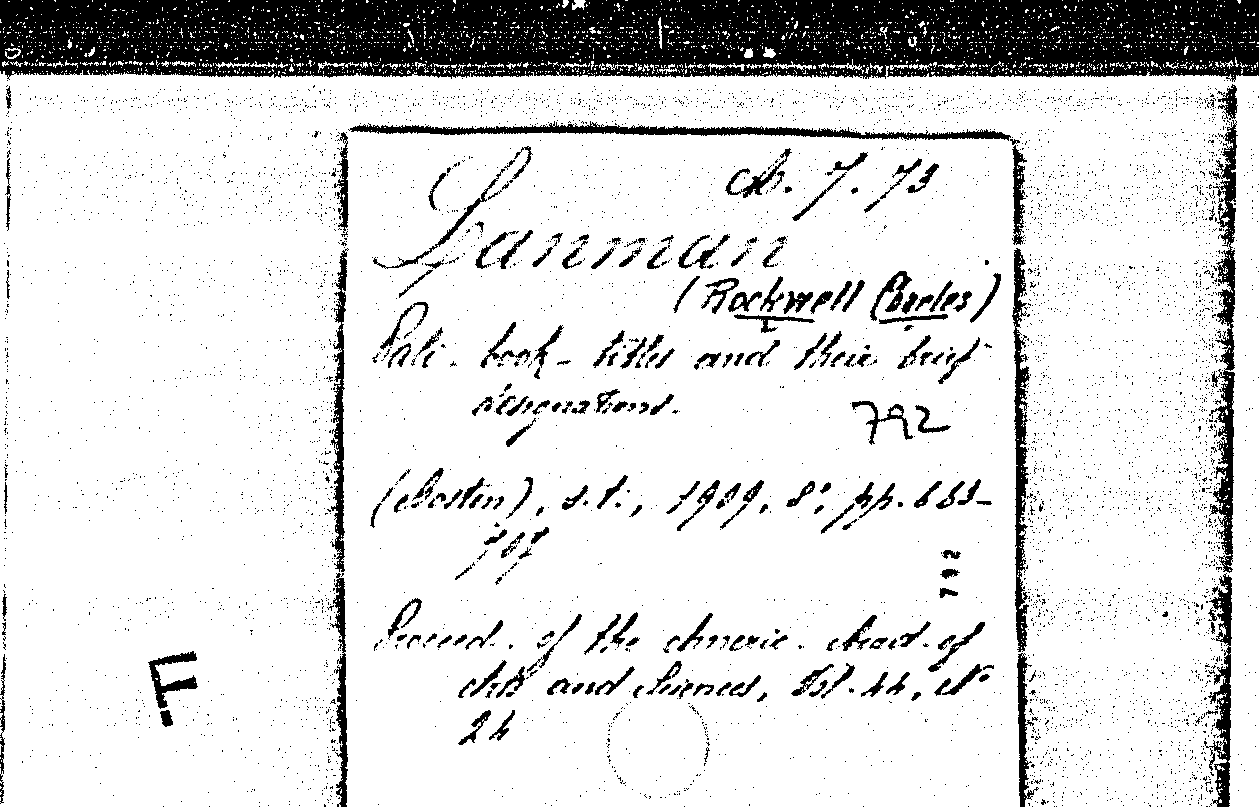 Ab. 7. 73
Lanman
(Rockwell Charles)
Pali-book-titles and their brief
designations.
792
(Boston), s.t., 1909, 8°, pp. 663-
707
792
Proceed. of the Americ. Acad. of
Arts and Sciences, Vol. 44, N°
24
F